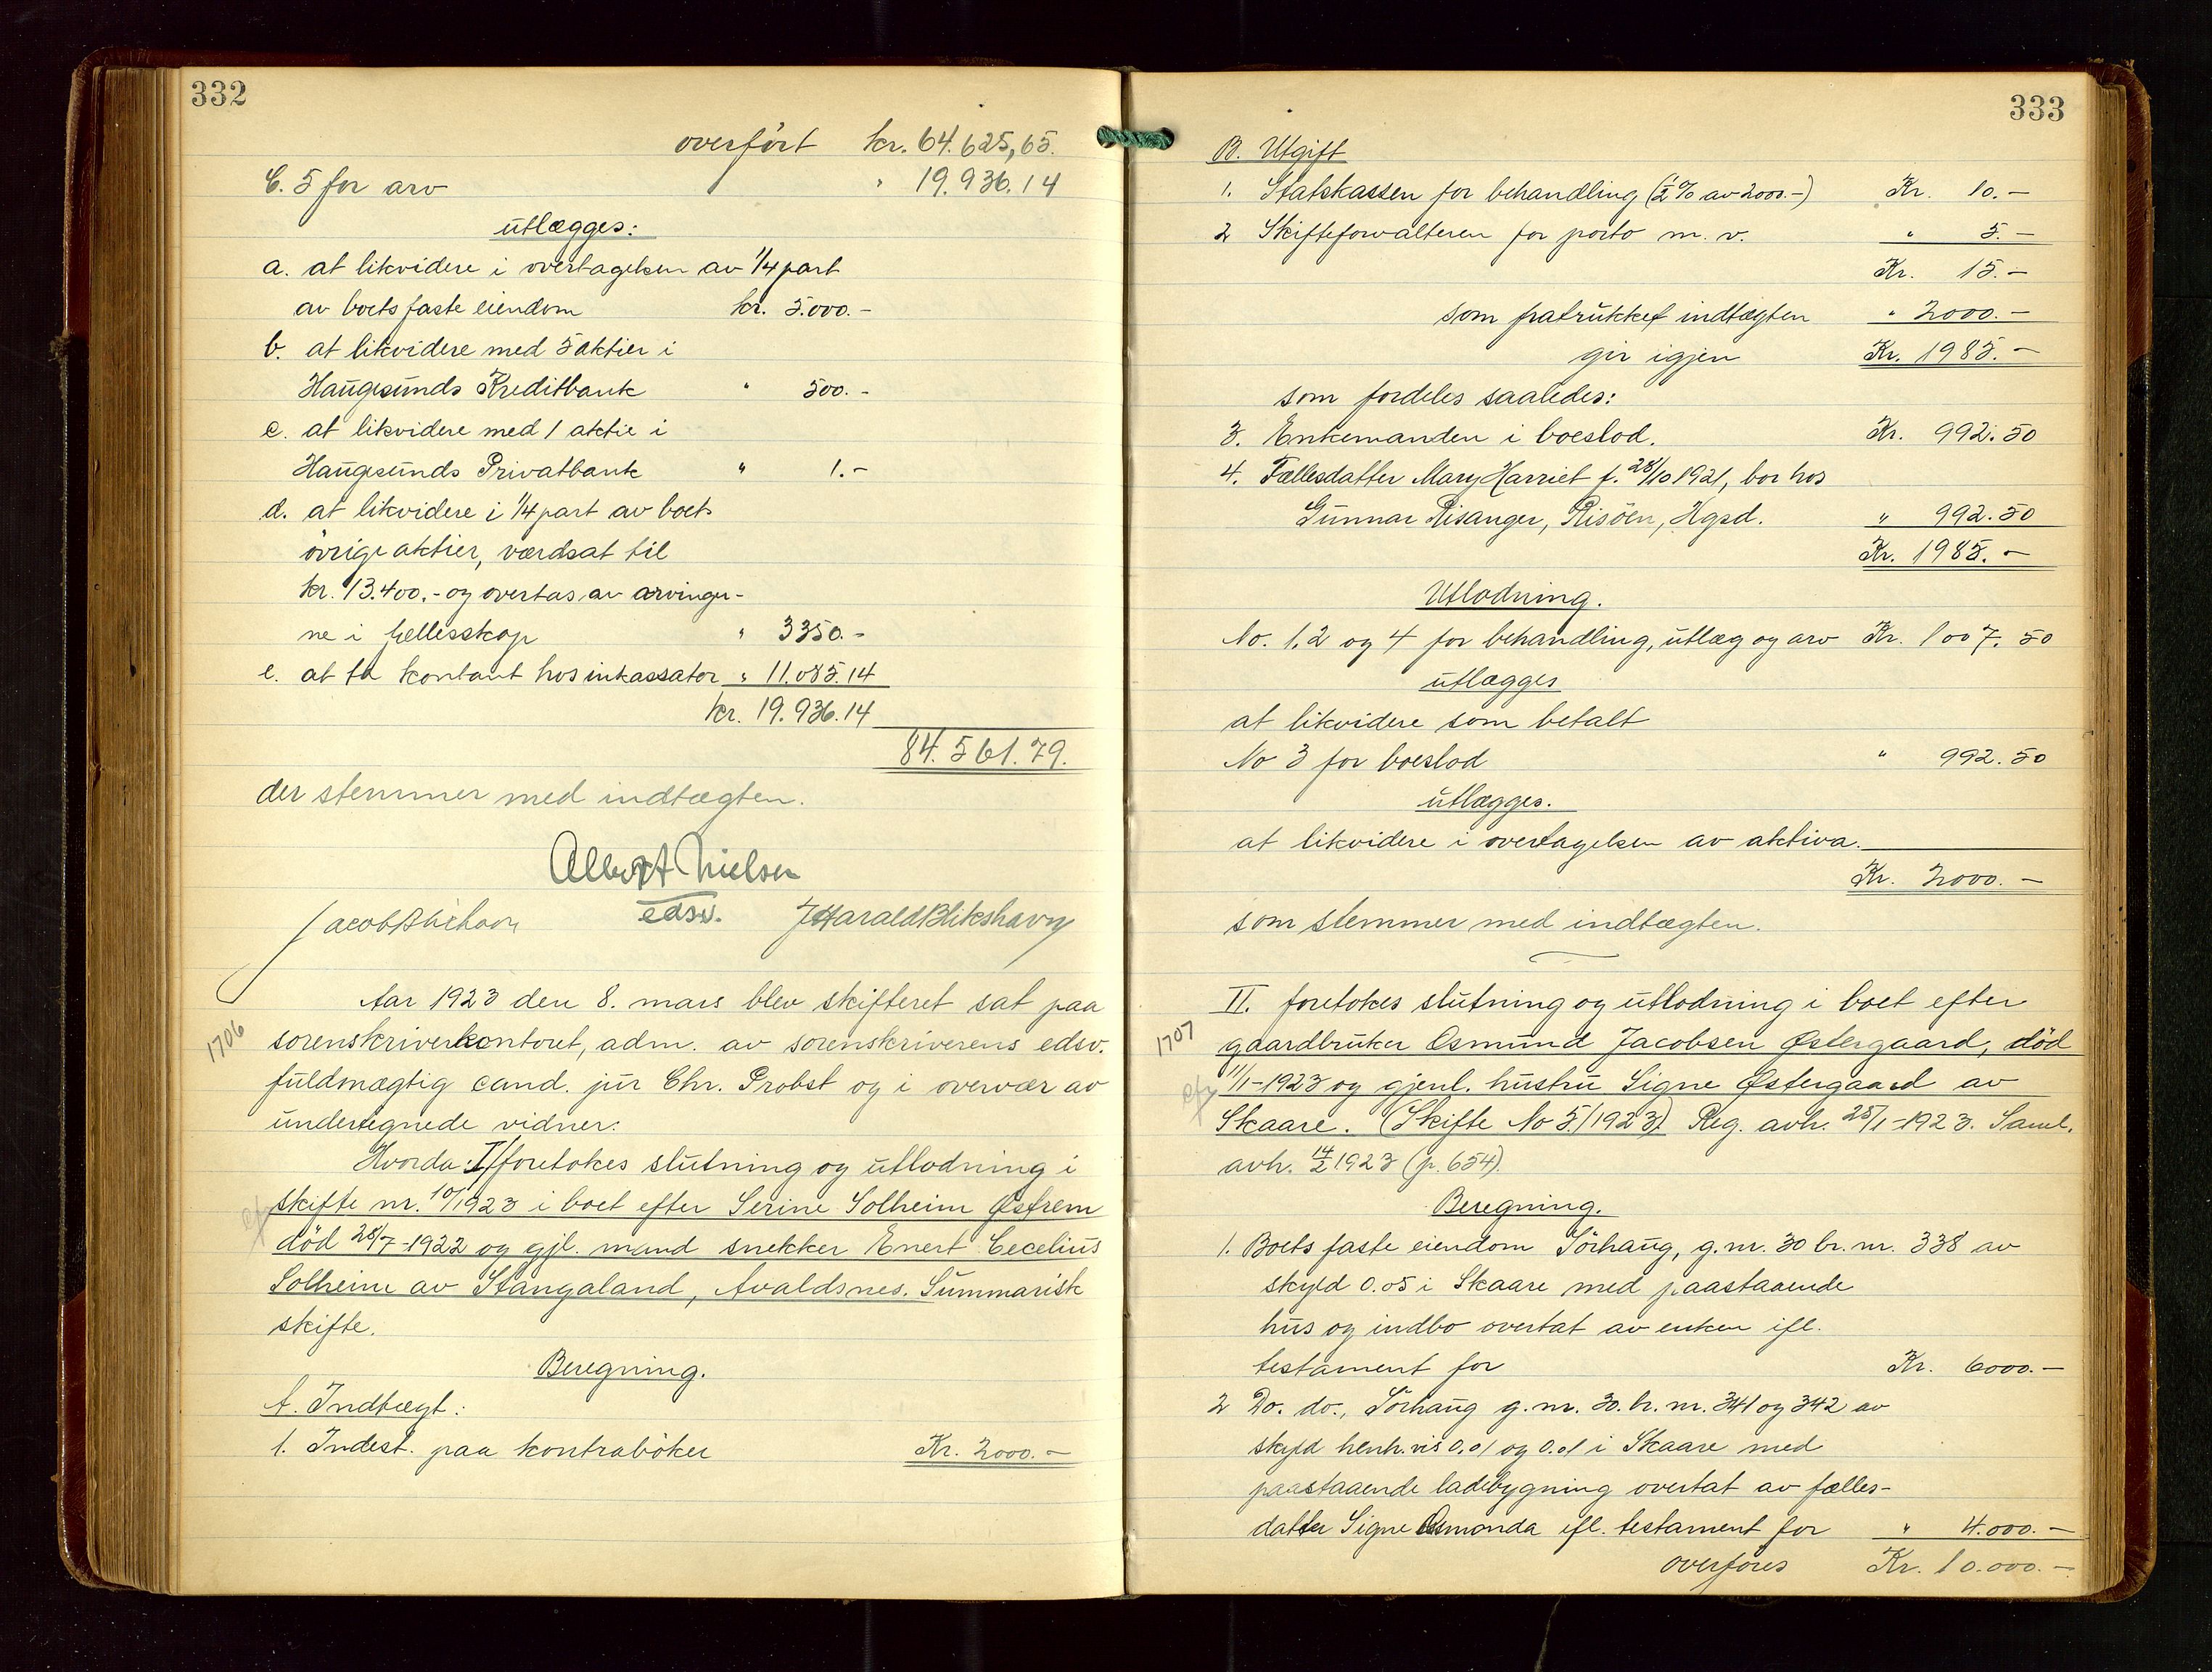 332
overført kr. 64.625,65.
C. 5 for arv " 19.936.14
utlægges:
a. at likvidere i overtagelsen av 1/4 part
av boets faste eiendom kr. 5.000.-
b. at likvidere med 5 aktier i
Haugesunds Kreditbank " 500.-
c. at likvidere med 1 aktie i
Haugesunds Privatbank " 1.-
d. at likvidere i 1/4 part av boets
øvrige aktier, værdsat til
kr. 13.400.- og overtas av arvinge-
ne i fællesskap " 3350.-
e. at ta kontant hos inkassator " 11.085.14
kr. 19.936.14
84.561.79.
der stemmer med indtægten.
Albert Nielsen
edsv.
Jacob J Harald Blikshavn
1706
Aar 1923 den 8. mars blev skifteret sat paa
sorenskriverkontoret, adm. av sorenskriverens edsv.
fuldmægtig cand. jur Chr. Probst og i overvær av
undertegnede vidner:
Hvorda: I/ foretokes slutning og utlodning i
skifte nr. 10/1923 i boet efter Serine Solheim Østrem
død 28/7-1922 og gjl. mand snekker Enert Cecelius
Solheim av Stangaland, Avaldsnes. Summarisk
skifte.
Beregning.
A. Indtægt:
1. Indest. paa kontrabøker Kr. 2000.-
333
B. Utgift
1. Statskassen for behandling (1/2 % av 2000.-) Kr. 10.-
2 Skifteforvalteren for porto m. v. " 5.-
Kr. 15.-
som fratrukket indtægten " 2000.-
gir igjen Kr. 1985.-
som fordeles saaledes:
3. Enkemanden i boeslod. Kr. 992.50
4. Fællesdatter Mary Harriet f. 28/10 1921, bor hos
Gunnar Risanger, Risøen, Hgsd. " 992.50
Kr. 1985.-
Utlodning.
No. 1, 2 og 4 for behandling, utlæg og arv Kr. 1007.50
utlægges
at likvidere som betalt
No 3 for boeslod " 992.50
utlægges.
at likvidere i overtagelsen av aktiva.
Kr. 2000.-
som stemmer med indtægten.
1707
II. foretokes slutning og utlodning i boet efter
gaardbruker Osmund Jacobsen Østergaard, død
11/1-1923 og gjenl. hustru Signe Østergaard av
Skaare. (Skifte No 5/1923) Reg. avh. 25/1-1923. Saml.
avh. 14/2 1923 (p. 654).
Beregning.
1. Boets faste eiendom Sørhaug, g.nr. 30 br.nr. 338 av
skyld 0.05 i Skaare med paastaaende
hus og indbo overtat av enken ifl.
testament for Kr. 6000.-
2 Do. do., Sørhaug g.nr. 30. br. nr. 341 og 342 av
skyld henh.vis 0.01 og 0.01 i Skaare med
paastaaende ladebygning overtat av fælles-
datter Signe Asmonda ifl. testament for " 4.000.-
overføres Kr. 10.000.-